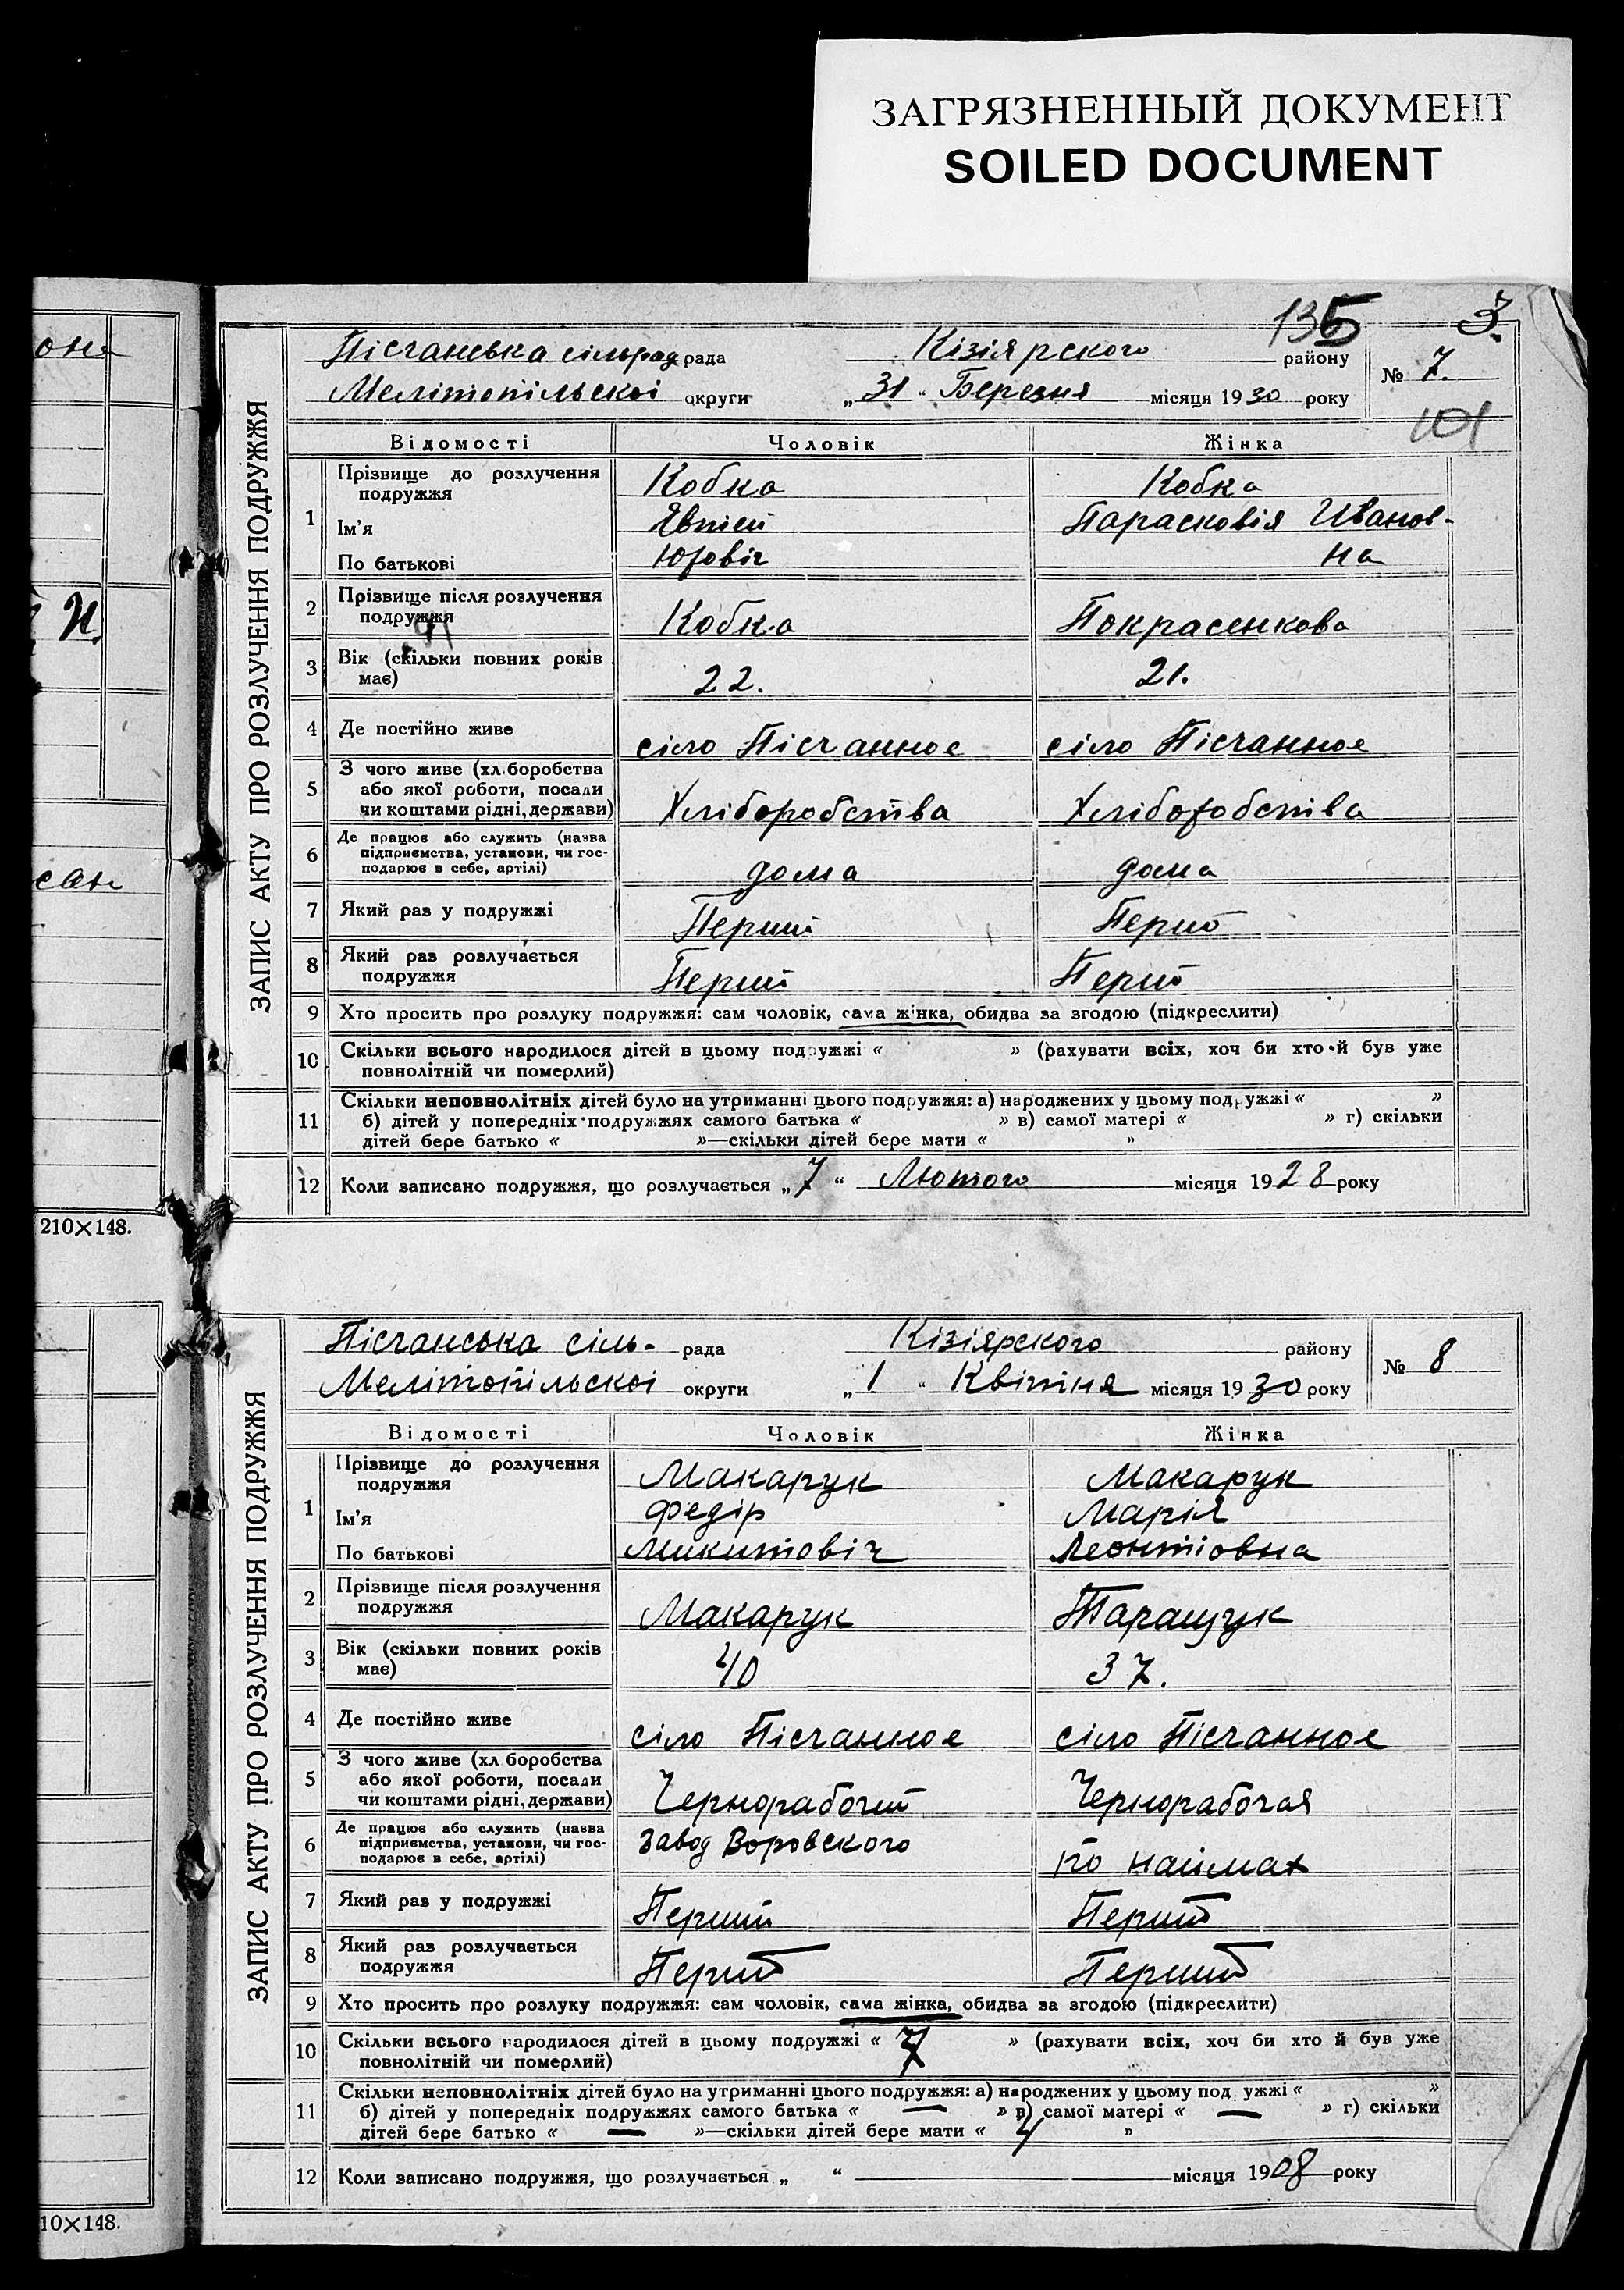 ЗАГРЯЗНЕННЫЙ ДОКУМЕНТ
SOILED DOCUMENT
135 3.
Пісчанська сільрад рада Кізіярского району № 7.
Мелітопільскоі округи „31“ Березня місяця 1930 року
101
ЗАПИС АКТУ ПРО РОЗЛУЧЕННЯ ПОДРУЖЖЯ
Відомості Чоловік Жінка
1 Прізвище до розлучення подружжя Кобка Кобка
Ім'я Євтій Парасковія Иванов-
По батькові Юровіч на
2 Прізвище після розлучення подружжя Кобка Покрасенкова
3 Вік (скільки повних років має) 22. 21.
4 Де постійно живе сіло Пісчанное сіло Пісчанное
5 З чого живе (хліборобства
або якої роботи, посади
чи коштами рідні, держави) Хліборобства Хліборобства
6 Де працює або служить (назва
підприємства, установи, чи гос-
подарює в себе, артілі) дома дома
7 Який раз у подружжі Перший Перший
8 Який раз розлучається
подружжя Перший Перший
9 Хто просить про розлуку подружжя: сам чоловік, сама жінка, обидва за згодою (підкреслити)
10 Скільки всього народилося дітей в цьому подружжі « » (рахувати всіх, хоч би хто й був уже
повнолітній чи померлий)
11 Скільки неповнолітніх дітей було на утриманні цього подружжя: а) народжених у цьому подружжі « »
б) дітей у попередніх подружжях самого батька « » в) самої матері « » г) скільки
дітей бере батько « »—скільки дітей бере мати « »
12 Коли записано подружжя, що розлучається „7“ Лютого місяця 1928 року
210×148.
Пісчанська сіль- рада Кізіярского району № 8
Мелітопільскоі округи „1“ Квітня місяця 1930 року
ЗАПИС АКТУ ПРО РОЗЛУЧЕННЯ ПОДРУЖЖЯ
Відомості Чоловік Жінка
1 Прізвище до розлучення
подружжя Макарук Макарук
Ім'я Федір Марія
По батькові Микитовіч Леонтіовна
2 Прізвище після розлучення
подружжя Макарук Таращук
3 Вік (скільки повних років
має) 40 37.
4 Де постійно живе сіло Пісчанное сіло Пісчанное
5 З чого живе (хліборобства
або якої роботи, посади
чи коштами рідні, держави) Чернорабочий Чернорабочая
6 Де працює або служить (назва
підприємства, установи, чи гос-
подарює в себе, артілі) Завод Воровского по наймах
7 Який раз у подружжі Перший Перший
8 Який раз розлучається
подружжя Перший Перший
9 Хто просить про розлуку подружжя: сам чоловік, сама жінка, обидва за згодою (підкреслити)
10 Скільки всього народилося дітей в цьому подружжі « 7 » (рахувати всіх, хоч би хто й був уже
повнолітній чи померлий)
11 Скільки неповнолітніх дітей було на утриманні цього подружжя: а) народжених у цьому подружжі « »
б) дітей у попередніх подружжях самого батька « — » в) самої матері « — » г) скільки
дітей бере батько « — »—скільки дітей бере мати « 4 »
12 Коли записано подружжя, що розлучається „ “ місяця 1908 року
10×148.